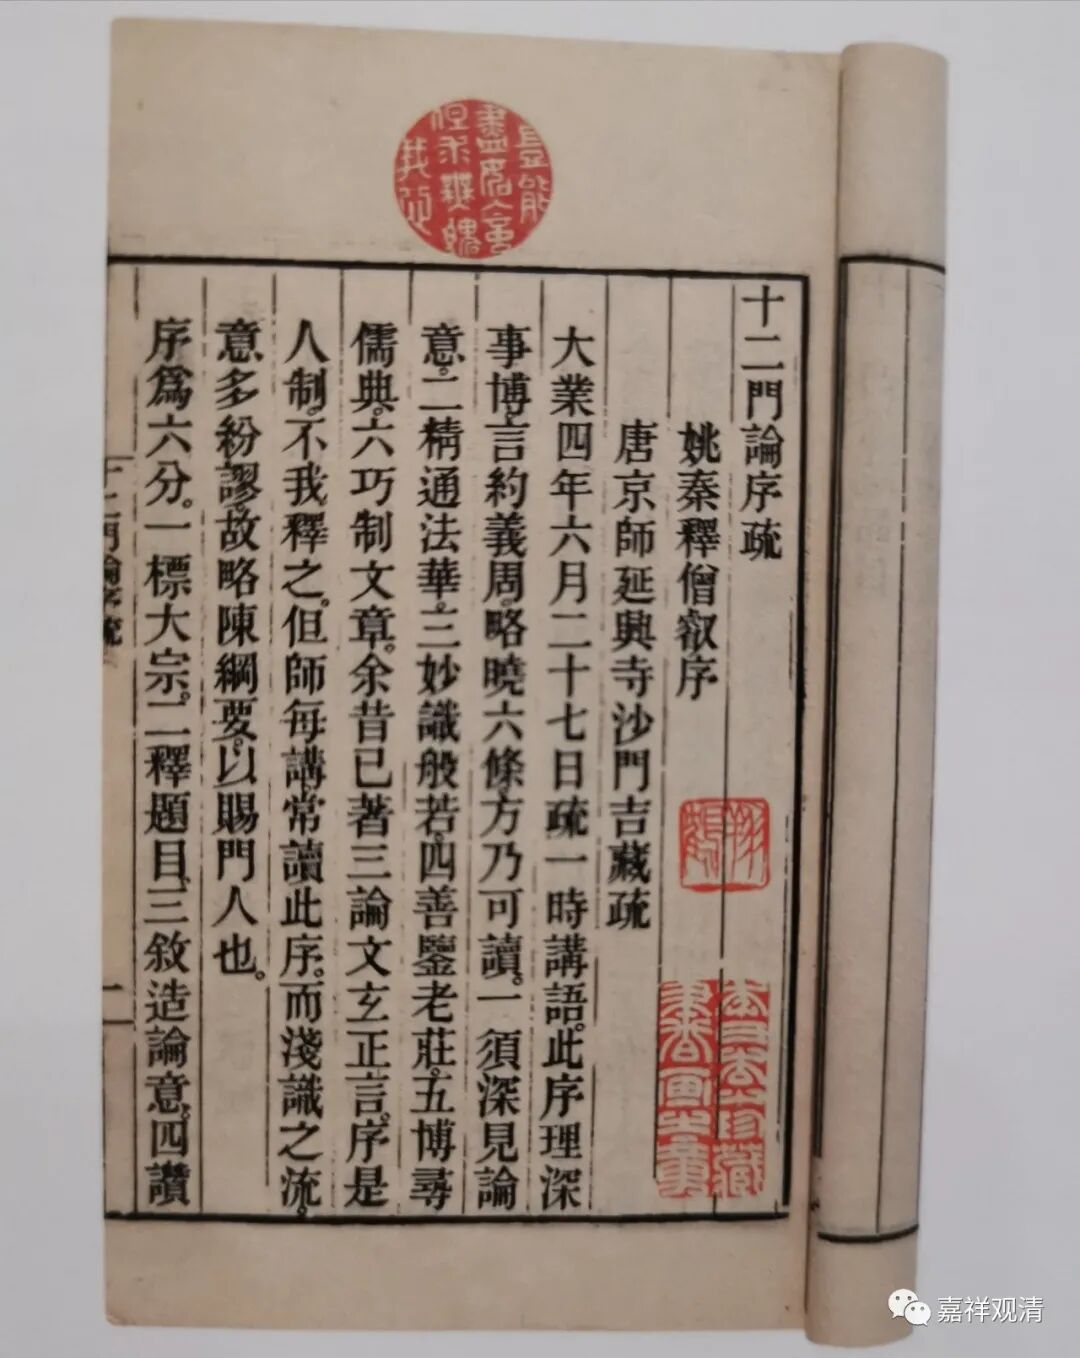 十二門論序疏
姚秦釋僧叡序
唐京師延興寺沙門吉藏疏
大業四年六月二十七日疏一時講語。此序理深
事博。言約義周。略曉六條。方乃可讀。一須深見論
意。二精通法華。三妙識般若。四善鑒老莊。五博尋
儒典。六巧制文章。余昔已著三論文玄。正言序是
人制。不我釋之。但師每講。常讀此序。而淺識之流。
意多紛謬。故略陳綱要。以賜門人也。
序爲六分。一標大宗。二釋題目。三敘造論意。四讚
十二門論序疏
一
豈能
盡如人意
但求無愧
我心
嘉祥观清